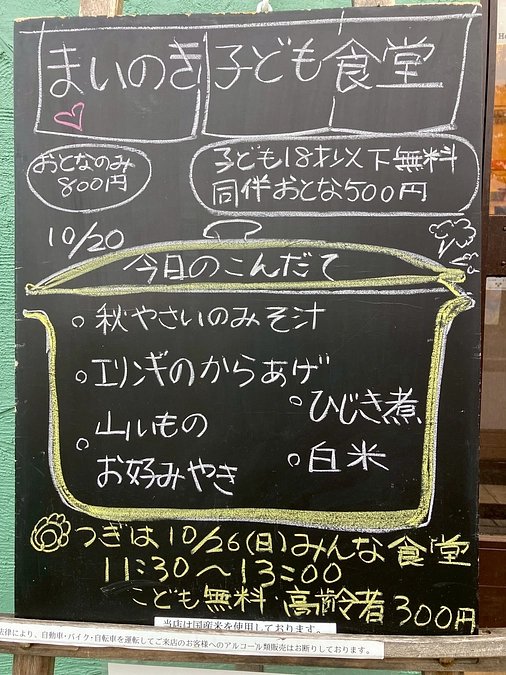 まいのき 子ども食堂
おとなのみ
800円
子ども18才以下無料
同伴おとな500円
10/20
今日のこんだて
○ 秋やさいのみそ汁
○ エリンギのからあげ
○ ひじき煮
○ 山いもの
お好みやき
○ 白米
つぎは10/26(日)みんな食堂
11:30〜13:00
こども無料・高齢者300円
当店は国産米を使用しております。
法律により、自動車・バイク・自転車を運転してご来店のお客様へのアルコール類販売はお断りしております。